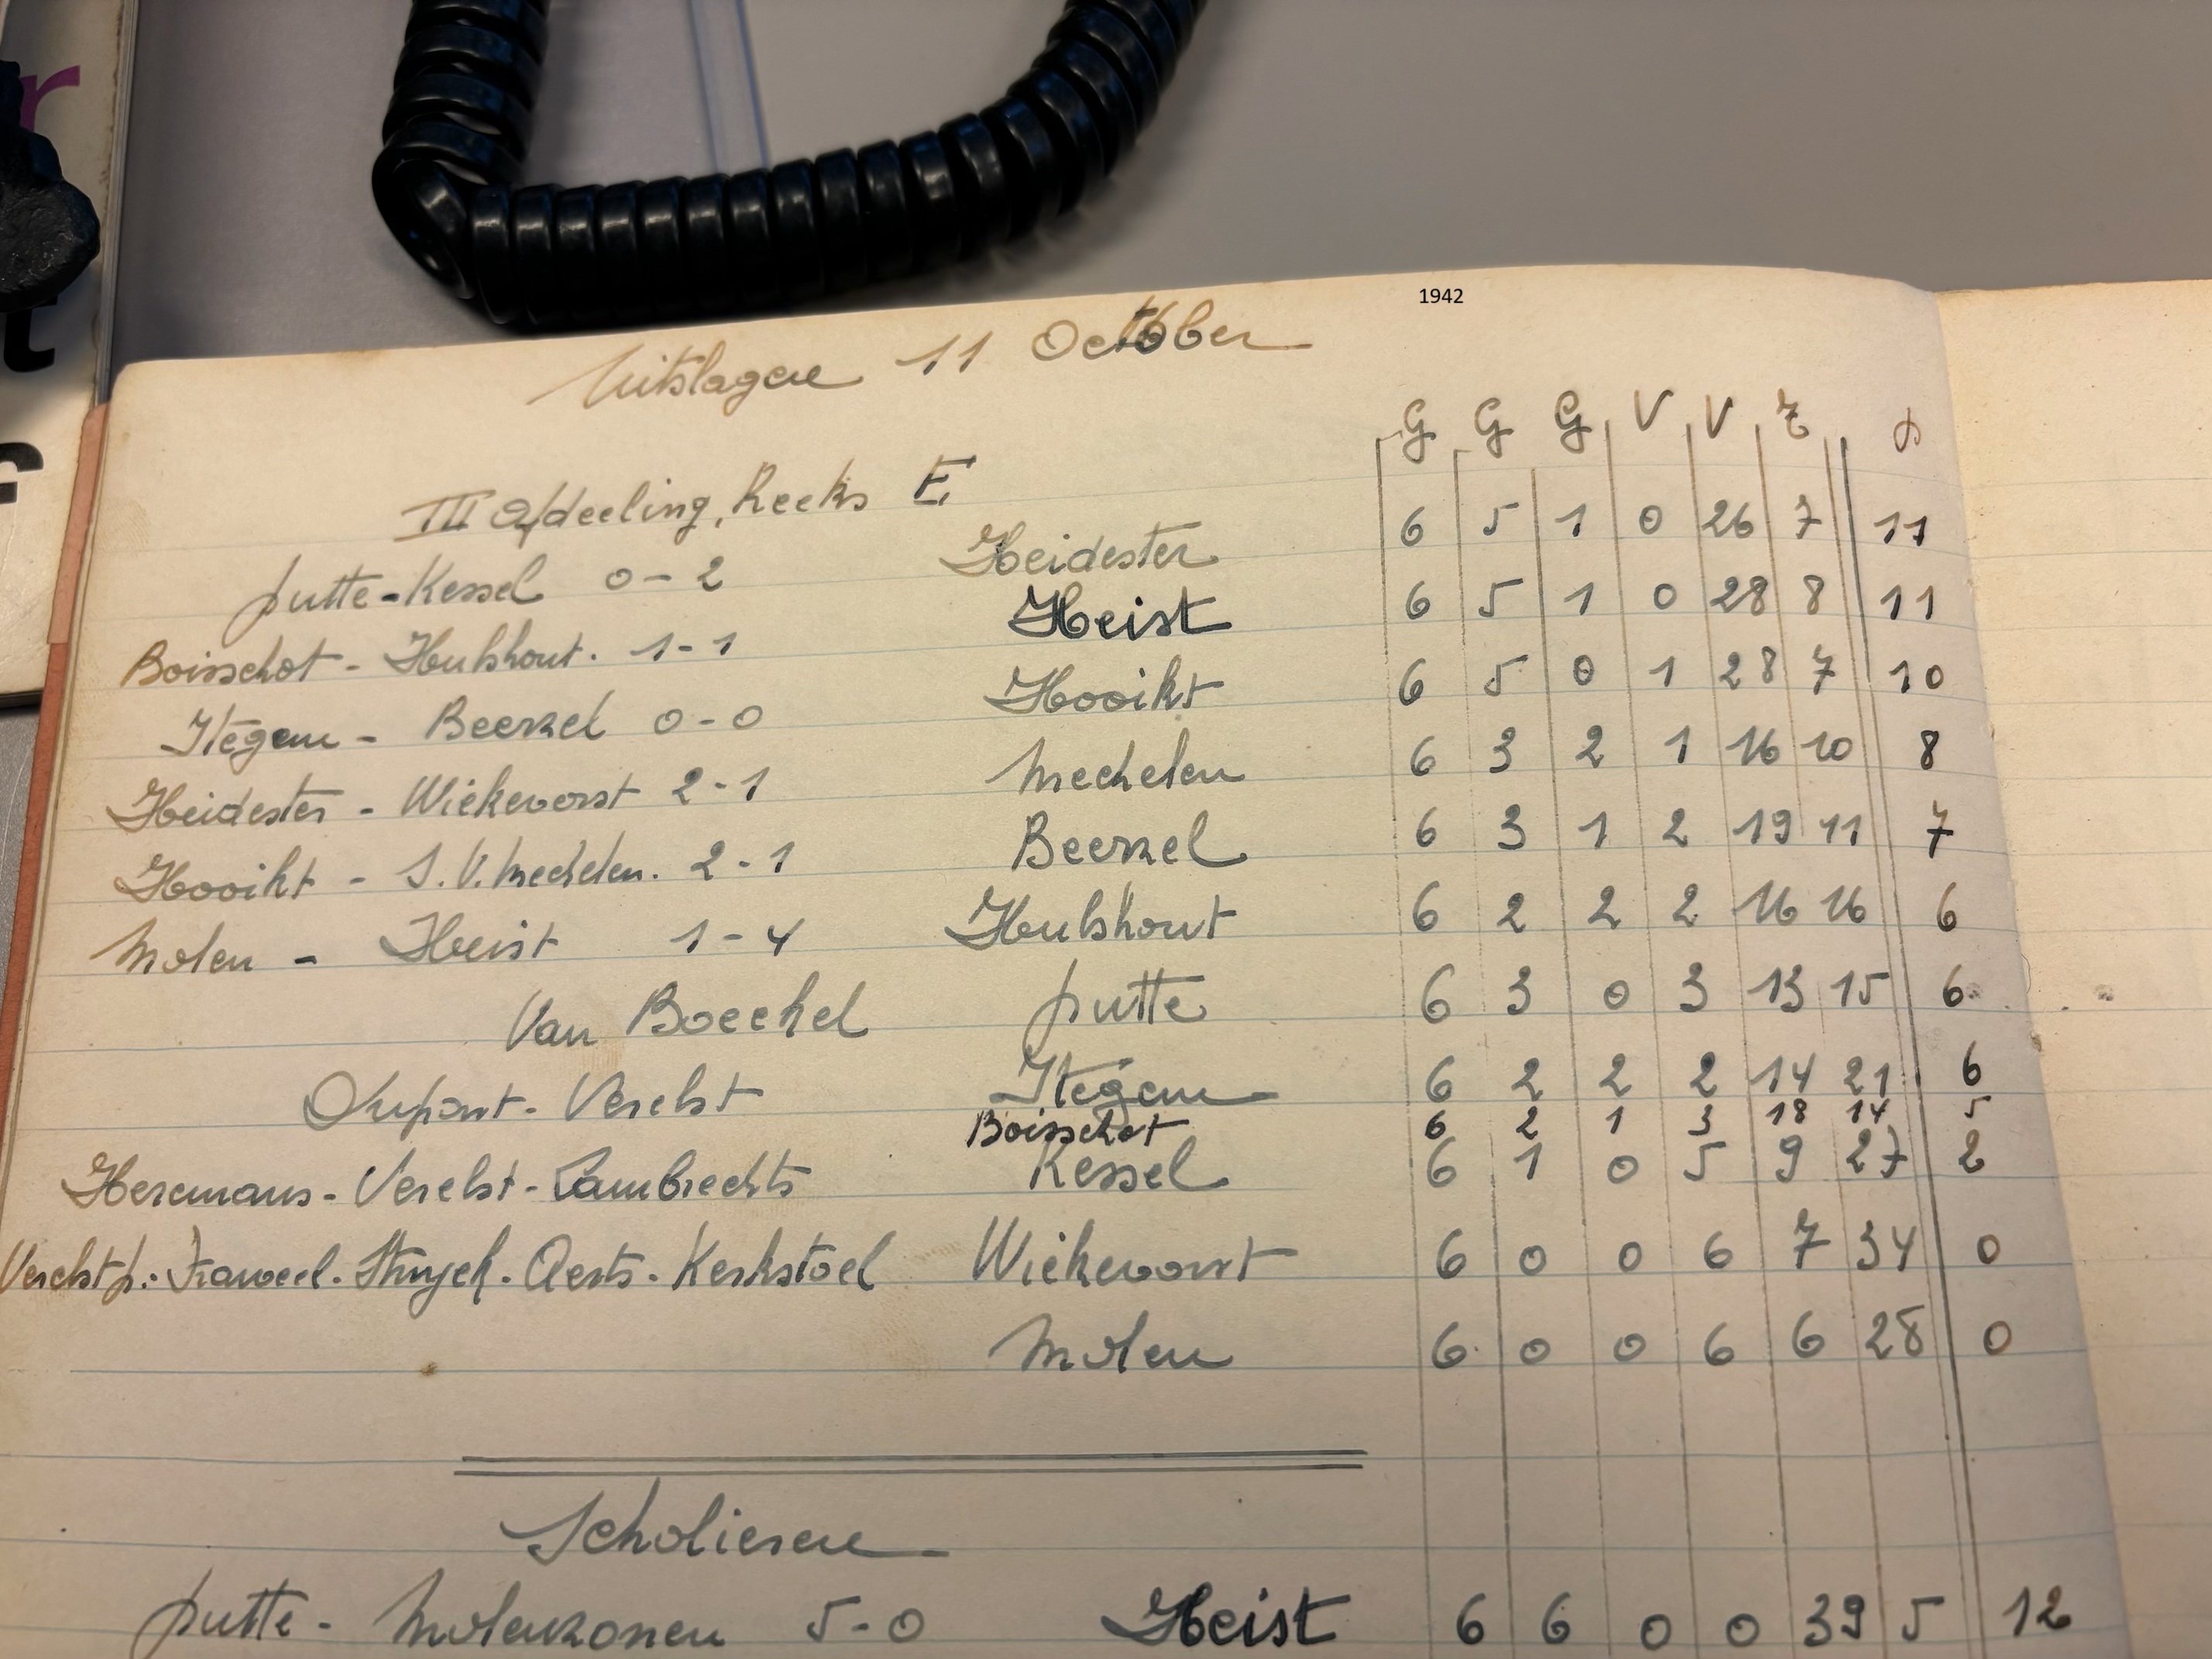 1942
Uitslagen 11 October
G G G V V Z P
III Afdeeling, Reeks E
putte - Kessel 0 - 2
Boisschot - Hulshout. 1 - 1
Itegem - Beerzel 0 - 0
Heidester - Wiekevorst 2 - 1
Hooikt - S.V. Mechelen. 2 - 1
Molen - Heist 1 - 4
Van Boeckel
Dupont - Verelst
Heremans - Verelst - Lambrechts
Verelst p. - - Struyck - Aerts - Kerkstoel
Heidester 6 5 1 0 26 7 11
Heist 6 5 1 0 28 8 11
Hooikt 6 5 0 1 28 7 10
Mechelen 6 3 2 1 16 10 8
Beerzel 6 3 1 2 19 11 7
Hulshout 6 2 2 2 16 16 6
putte 6 3 0 3 13 15 6
Itegem 6 2 2 2 14 21 6
Boisschot 6 2 1 3 18 14 5
Kessel 6 1 0 5 9 27 2
Wiekevorst 6 0 0 6 7 34 0
Molen 6 0 0 6 6 28 0
Scholieren
putte - Molenzonen 5 - 0
Heist 6 6 0 0 39 5 12